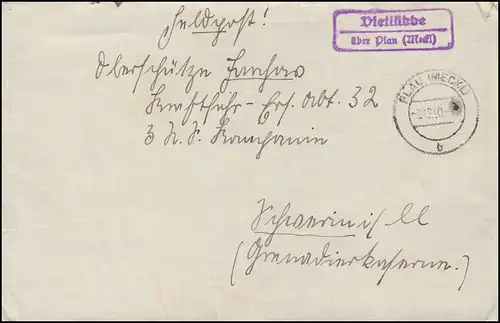 Feldpost!
Vietlübbe
über Plau (Meckl)
Oberschütze
Kraftfahr-Ers. Abt. 32
PLAU (MECKL)
3 N. S. Kompanie
b
Schwerin i/M
(Grenadierkaserne.)